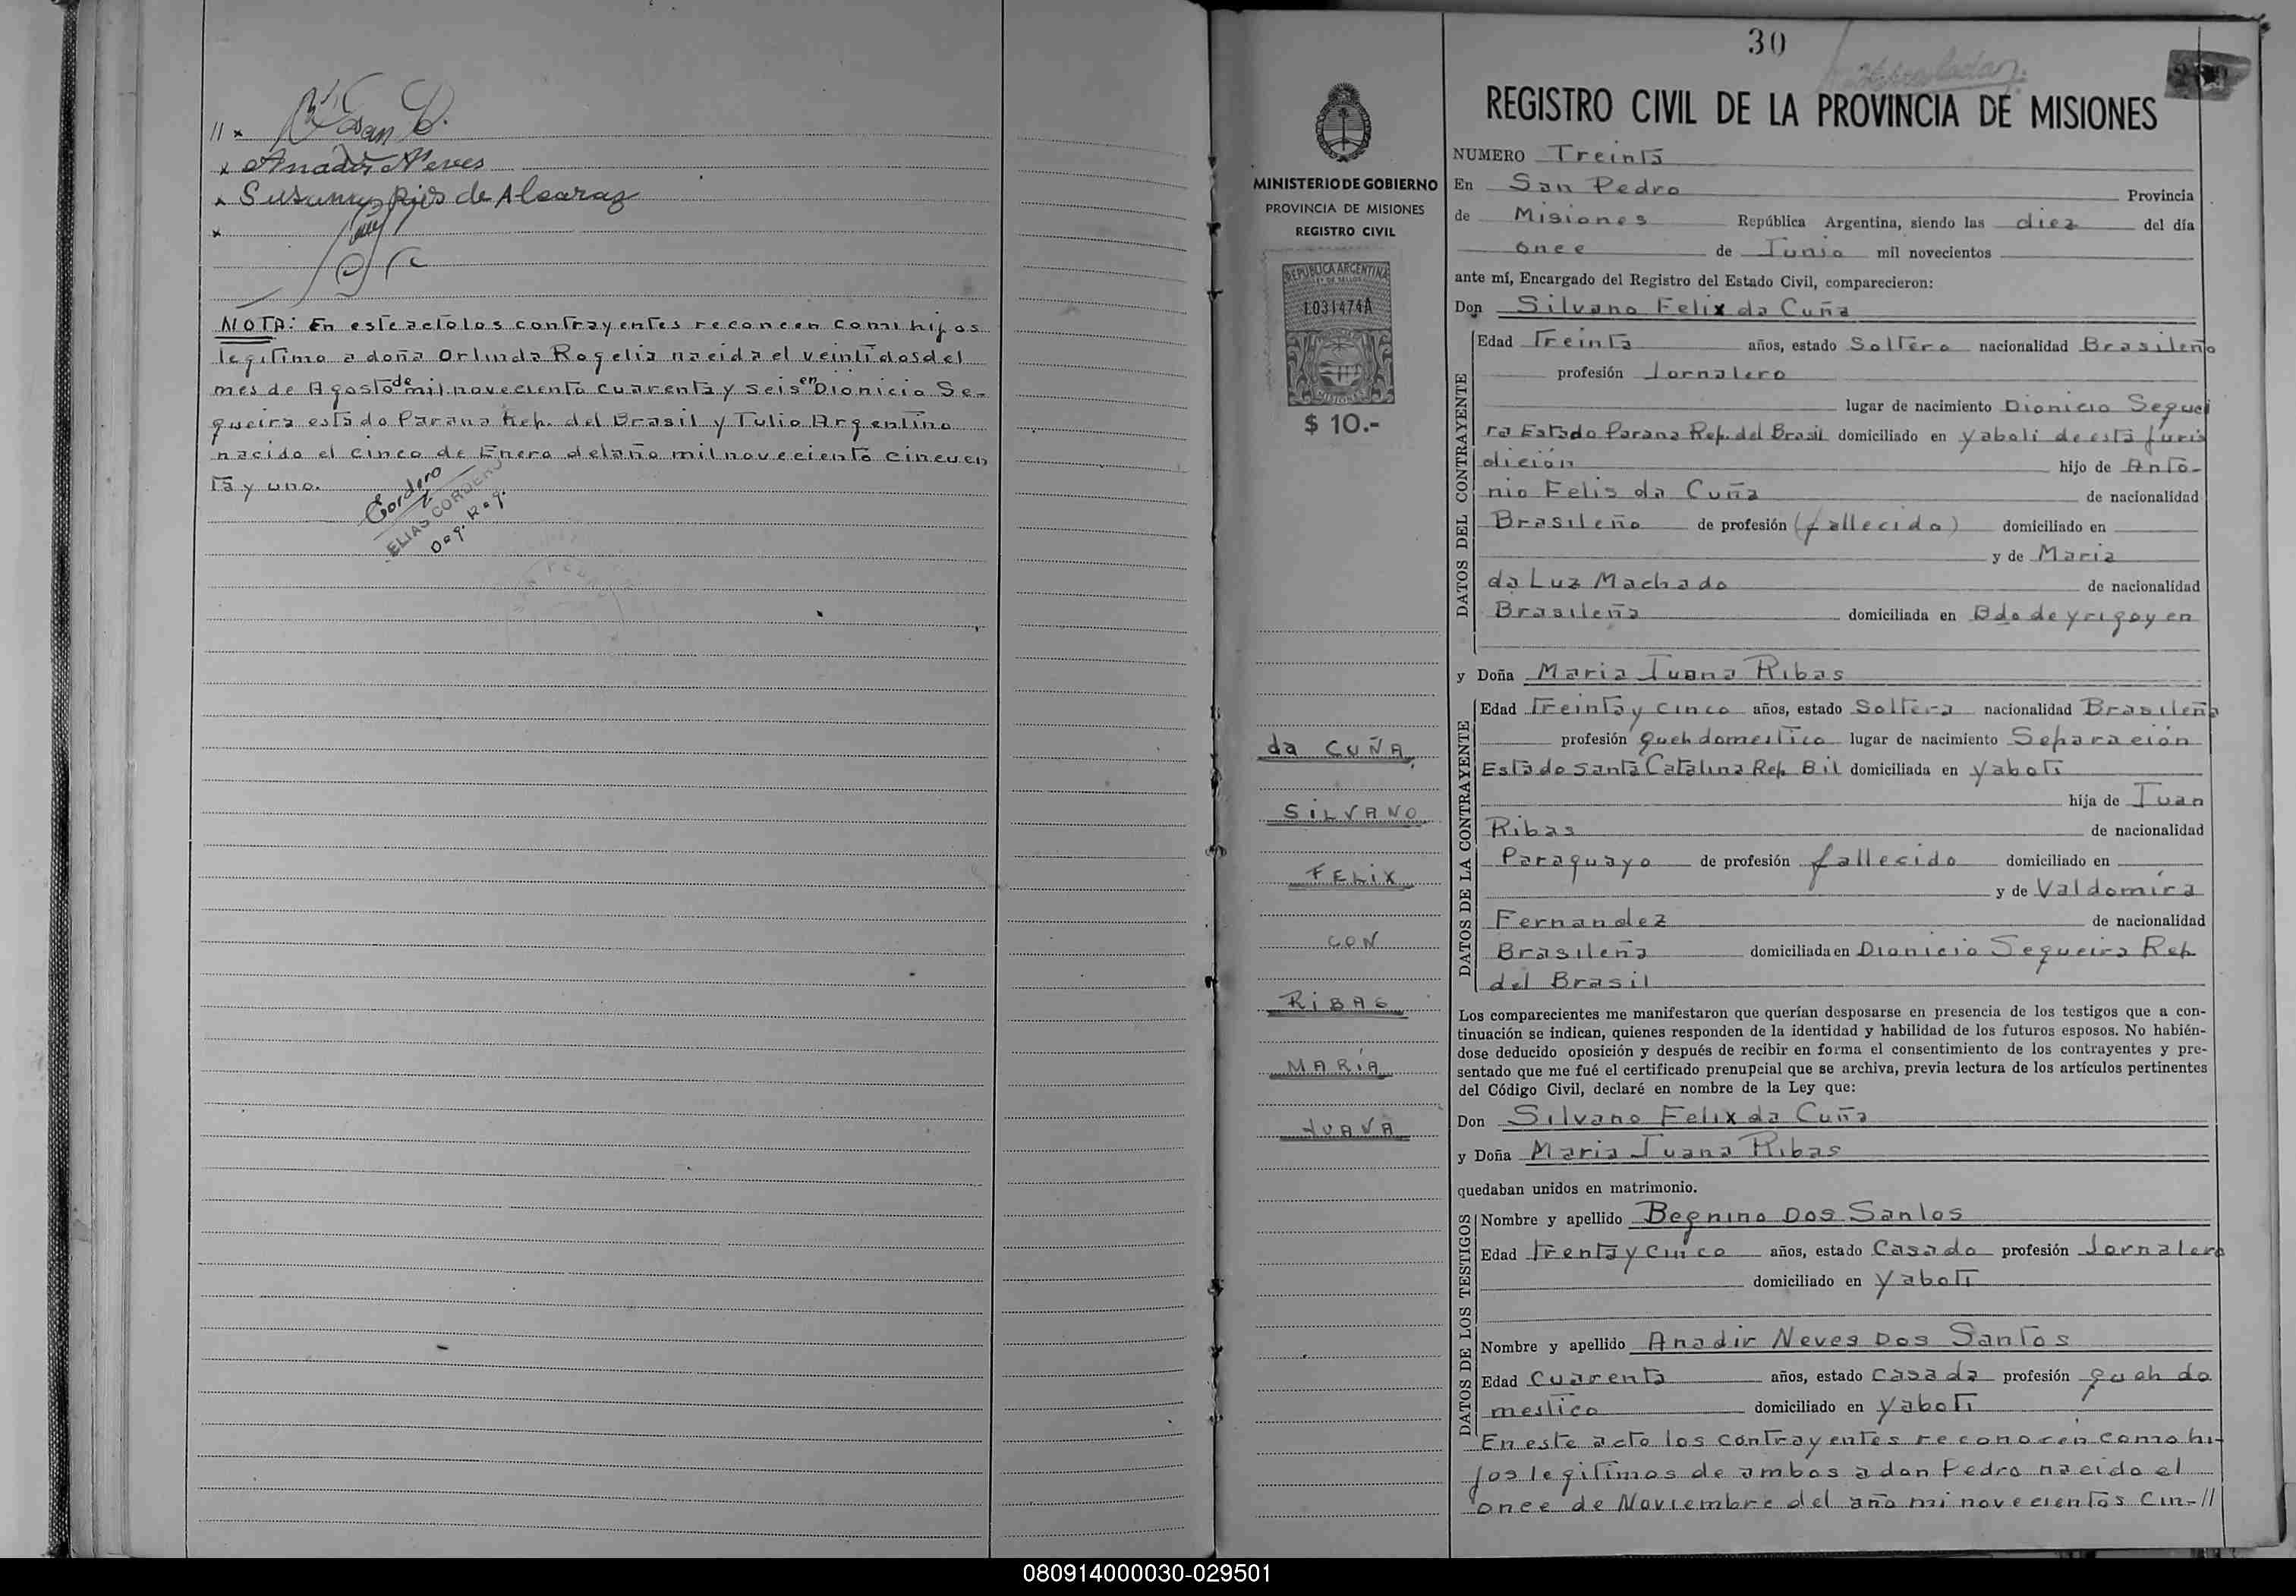 // x
x Anadir Neves
x Susana Rios de Alcaraz
x
NOTA: En este acto los contrayentes reconcen comi hijos
legitimo a doña Orlinda Rogelia nacida el veintidos del
mes de Agosto de mil noveciento cuarenta y seis en Dionicio Se-
queira estado Parana Rep. del Brasil y Tulio Argentino
nacido el cinco de Enero del año mil noveciento cincuen
ta y uno.
Cordero
ELIAS CORDERO
Deg. Reg.
30
REGISTRO CIVIL DE LA PROVINCIA DE MISIONES
MINISTERIO DE GOBIERNO
PROVINCIA DE MISIONES
REGISTRO CIVIL
REPUBLICA ARGENTINA
1031474A
MISIONES
$ 10.-
da CUÑA,
SILVANO
FELIX
CON
RIBAS
MARÍA
JUANA
NUMERO Treinta
En San Pedro Provincia
de Misiones República Argentina, siendo las diez del día
once de Junio mil novecientos
ante mí, Encargado del Registro del Estado Civil, comparecieron:
Don Silvano Felix da Cuña
DATOS DEL CONTRAYENTE
Edad Treinta años, estado Soltero nacionalidad Brasileño
profesión Jornalero
lugar de nacimiento Dionicio Sequei
ra Estado Parana Rep. del Brasil domiciliado en Yaboti de esta juris
dición hijo de Anto-
nio Felis da Cuña de nacionalidad
Brasileño de profesión (fallecido) domiciliado en
y de Maria
da Luz Machado de nacionalidad
Brasileña domiciliada en Bdo de Yrigoyen
y Doña Maria Juana Ribas
DATOS DE LA CONTRAYENTE
Edad Treinta y cinco años, estado Soltera nacionalidad Brasileña
profesión queh domestico lugar de nacimiento Separación
Estado Santa Catalina Rep Bil domiciliada en Yaboti
hija de Juan
Ribas de nacionalidad
Paraguayo de profesión fallecido domiciliado en
y de Valdomira
Fernandez de nacionalidad
Brasileña domiciliada en Dionicio Sequeira Rep
del Brasil
Los comparecientes me manifestaron que querían desposarse en presencia de los testigos que a con-
tinuación se indican, quienes responden de la identidad y habilidad de los futuros esposos. No habién-
dose deducido oposición y después de recibir en forma el consentimiento de los contrayentes y pre-
sentado que me fué el certificado prenupcial que se archiva, previa lectura de los artículos pertinentes
del Código Civil, declaré en nombre de la Ley que:
Don Silvano Felix da Cuña
y Doña Maria Juana Ribas
quedaban unidos en matrimonio.
DATOS DE LOS TESTIGOS
Nombre y apellido Begnino Dos Santos
Edad Trenta y cinco años, estado Casado profesión Jornalero
domiciliado en Yaboti
Nombre y apellido Anadir Neves Dos Santos
Edad Cuarenta años, estado Casada profesión queh do
mestico domiciliado en Yaboti
En este acto los contrayentes reconocen como hi-
jos legitimos de ambos a don Pedro nacido el
once de Noviembre del año mi novecientos Cin-//
080914000030-029501